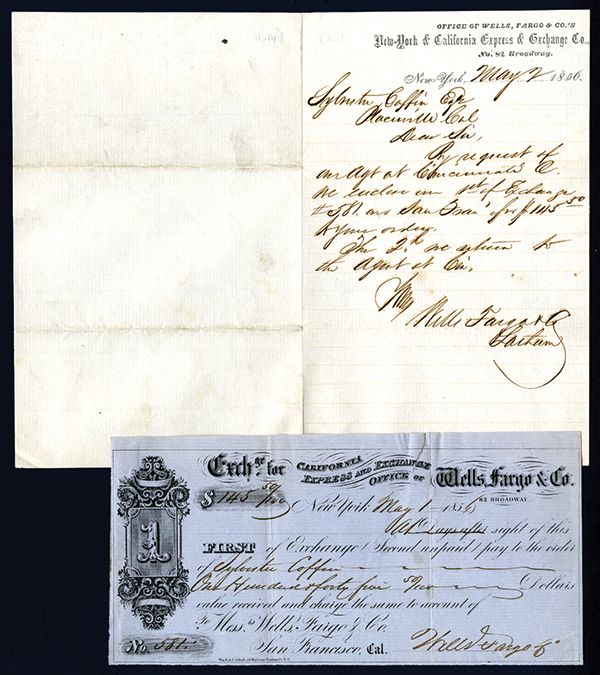 OFFICE OF WELLS, FARGO & CO.'S
New-York & California Express & Exchange Co.,
No. 82 Broadway.
New-York, May 2 1856.
Sylvester Coffin Esqr
Placerville Cal
Dear Sir,
By request of
our Agt at Cincinnati O.
We enclose our 1st of Exchange
#381. on San Fran for $145 50
to your order.
The 2d we return to
the Agent at Cin.
Wells Fargo & Co
Exchᵍᵉ for
CALIFORNIA
EXPRESS AND EXCHANGE
OFFICE OF
Wells, Fargo & Co.
82 BROADWAY
$ 145 50/100
New York May 1 1856
At Days after sight of this
FIRST of Exchange (Second unpaid) pay to the order
of Sylvester Coffin
One Hundred & forty five 50/100 Dollars
value received and charge the same to account of
To Mess.rs Wells, Fargo & Co.
San Francisco, Cal.
Wells Fargo & Co
1
No. 381.